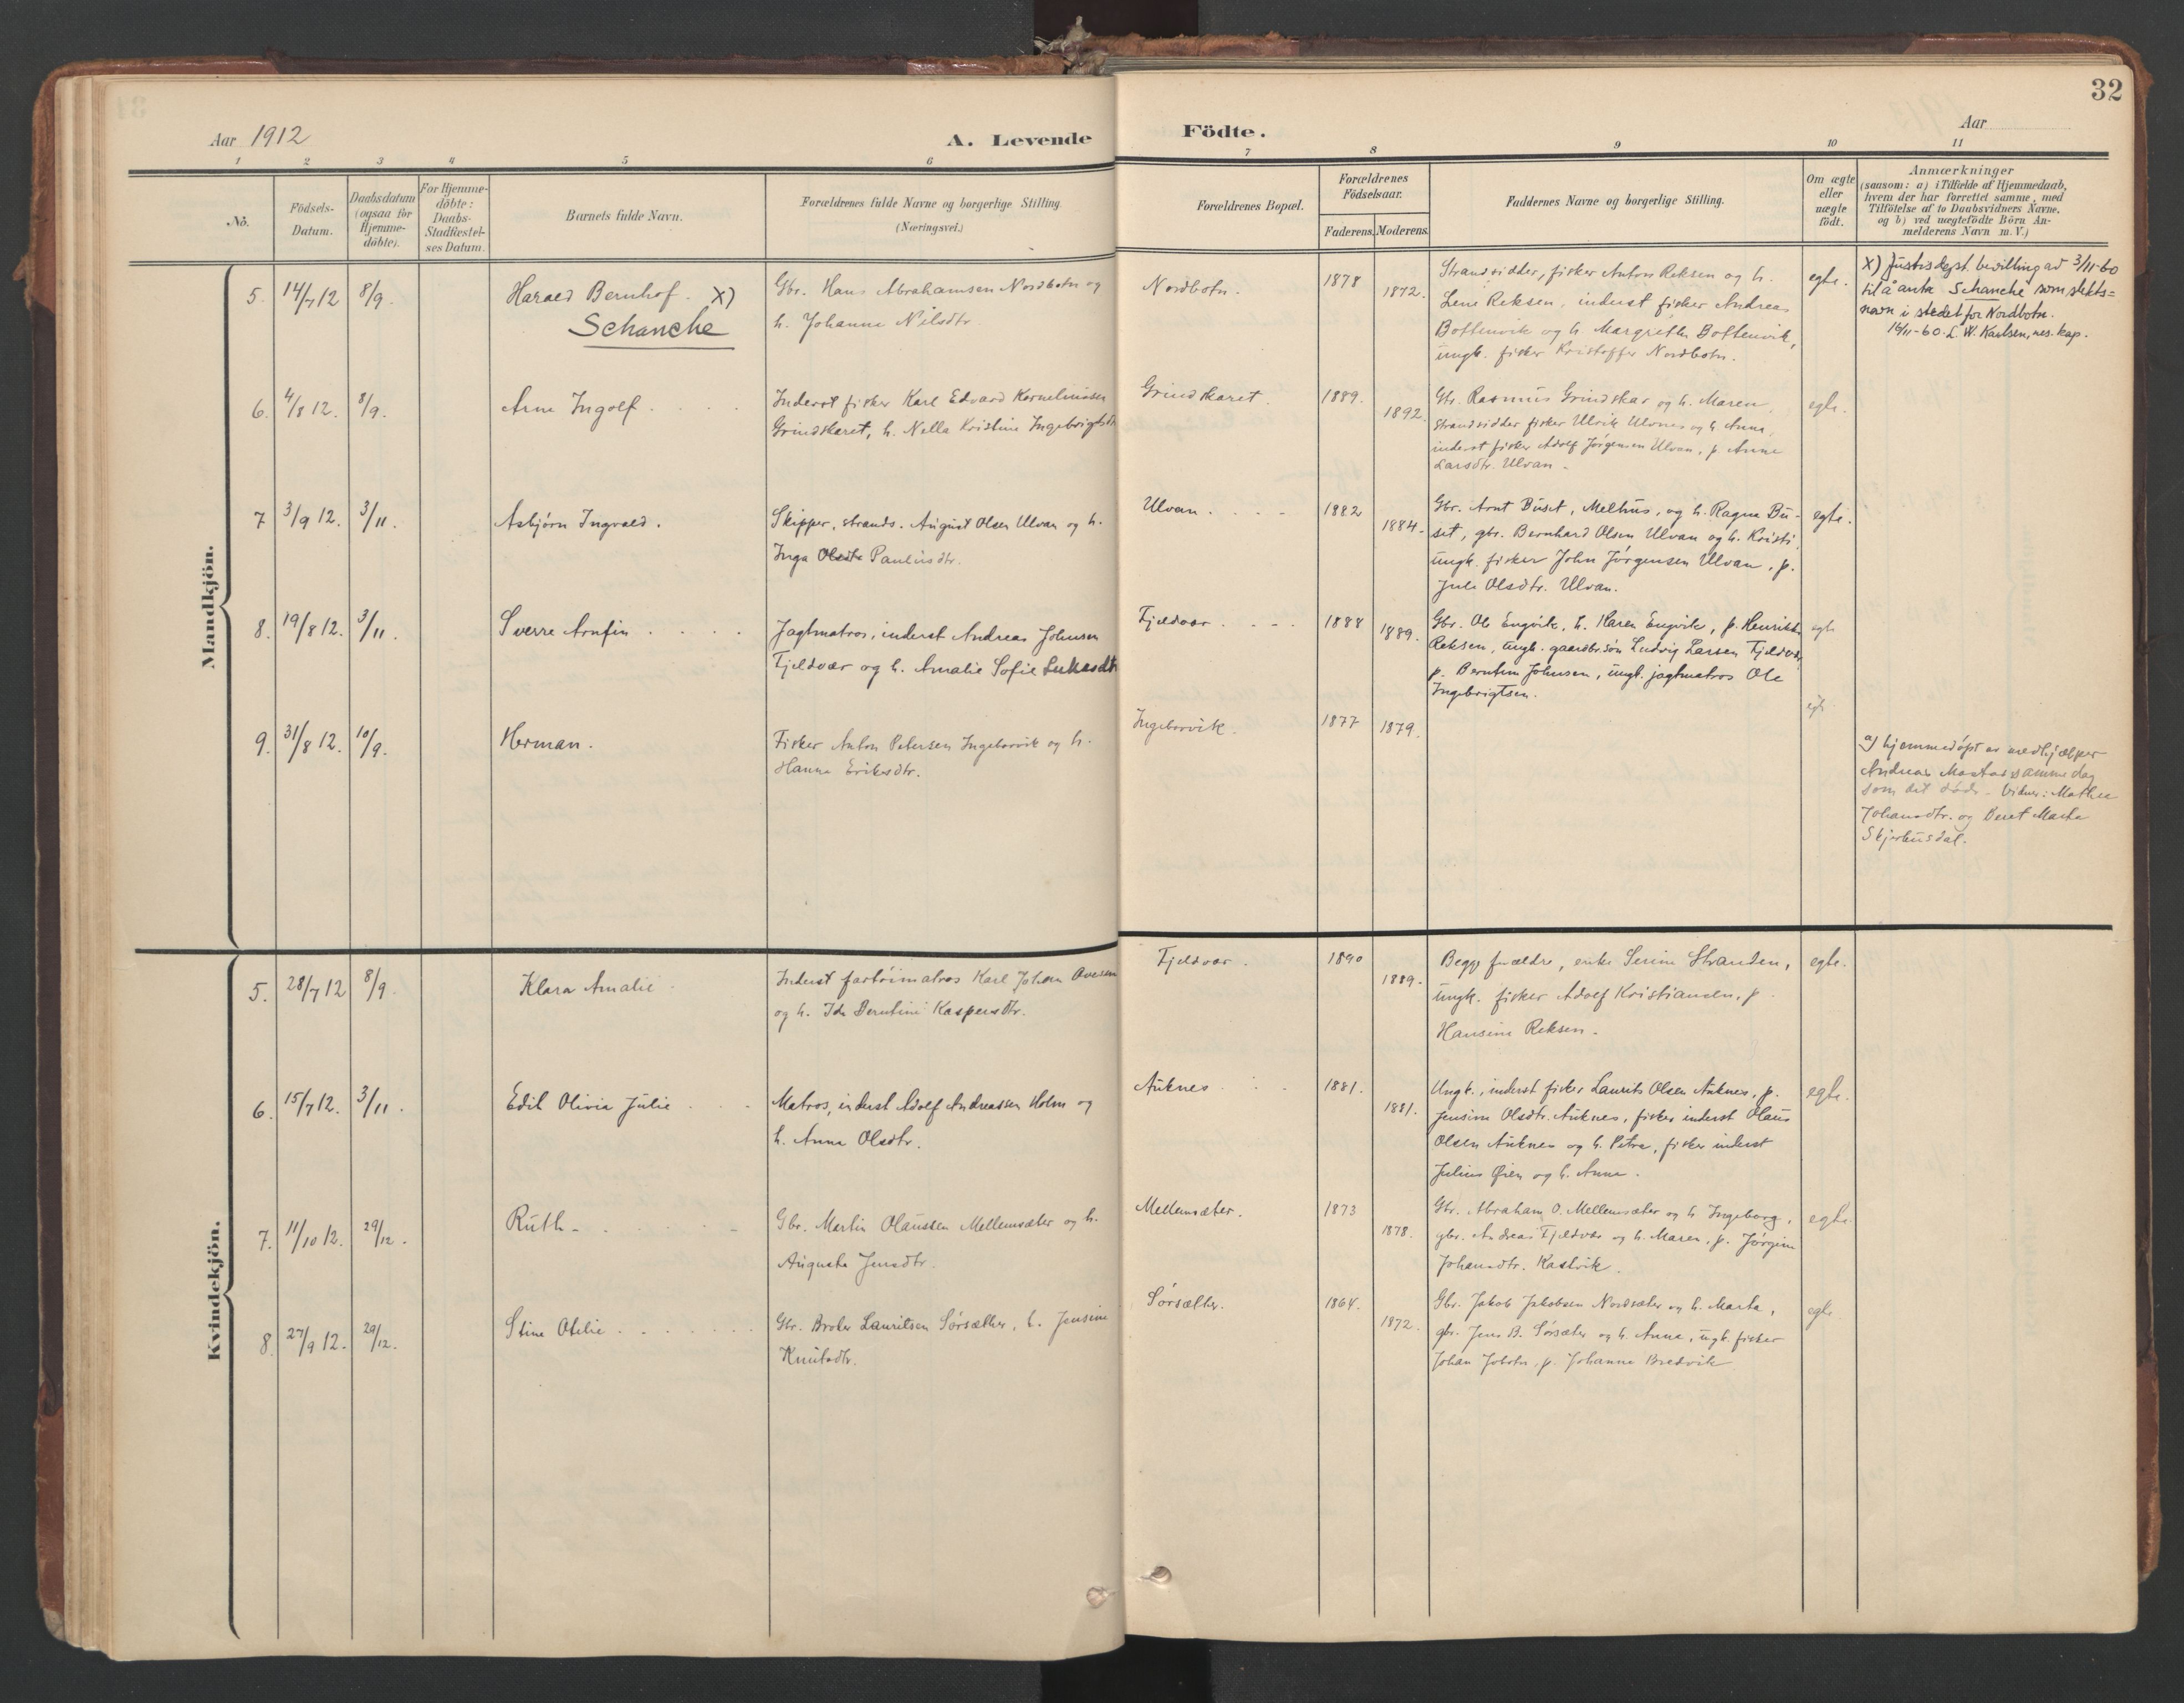 32
Aar 1912
A. Levende Födte.
Aar
1 2 3 4 5 6 7 8 9 10 11
No.
Födsels-
Datum.
Daabsdatum
(ogsaa for
Hjemme-
döbte).
For Hjemme-
döbte:
Daabs-
Stadfæstel-
ses Datum.
Barnets fulde Navn.
Forældrenes fulde Navne og borgerlige Stilling
(Næringsvei.)
Forældrenes Bopæl.
Forældrenes
Födselsaar.
Faderens. Moderens.
Faddernes Navne og borgerlige Stilling.
Om ægte
eller
uægte
födt.
Anmærkninger
(saasom: a) i Tilfælde af Hjemmedaab,
hvem der har forrettet samme, med
Tilföielse af to Daabsvidners Navne,
og b) ved uægtefödte Börn An-
melderens Navn m. V.)
Mandkjön.
5. 14/7 12 8/9.
Harald Bernhof. X)
Schanche
Gbr. Hans Abrahamsen Nordbotn og
h. Johanne Nilsdtr.
Nordbotn.
1878
1872.
Strandsidder, fisker Anton Reksen og h.
Lene Reksen, inderst fisker Andreas
Bottenvik og h. Margrethe Bottenvik,
ungk. fisker Kristoffer Nordbotn.
egte.
X) Justisdept. bevilling av 3/11-60
til å anta Schanche som slekts=
navn i stedet for Nordbotn.
16/11-60. L. W. Karlsen, res. kap.
6. 4/8 12. 8/9.
Arne Ingolf.
Inderst fisker Karl Edvard Korneliussen
Grindskaret, h. Nella Kristine Ingebrigtsdtr
Grindskaret.
1889.
1892.
Gbr. Rasmus Grindskar og h. Maren,
strandsidder fisker Ulrik Ulvnes og h. Anna,
inderst fisker Adolf Jørgensen Ulvan, p. Anne
Larsdtr. Ulvan -
egte.
7 3/9 12. 3/11.
Asbjørn Ingvald.
Skipper, strands. August Olsen Ulvan og h.
Inga Paulusdtr.
Ulvan.
1882
1884.
Gbr. Arnt Buset, Melhus, og h. Ragna Bu-
set, gbr. Bernhard Olsen Ulvan og h. Kristi,
ungk. fisker John Jørgensen Ulvan, p.
Juli Olsdtr. Ulvan.
egte.
8. 19/8 12. 3/11.
Sverre Arnfin
Jagtmatros, inderst Andreas Johnsen
Fjeldvær og h. Amalie Sofie Lukasdtr
Fjeldvær
1888
1889.
Gbr. Ole Engvik, h. Karen Engvik, p. Henrikke
Reksen, ungk. gaardbr.søn Ludvig Larsen Fjeldvær,
p. Berntine Johnsen, ungk. jagtmatros Ole
Ingebrigtsen.
egte
9. 31/8 12. 10/9.
Herman.
Fisker Anton Petersen Ingeborvik og h.
Hanna Eriksdtr.
Ingeborvik.
1877
1879.
egte
a) hjemmedøpt av medhjælper
Andreas Mastad samme dag
som det døde. Vidner: Mathea
Johansdtr. og Beret Marta
Skjærhusdal.
Kvindekjön.
5. 28/7 12 8/9
Klara Amalie
Inderst fartøimatros Karl Johan
og h. Ida Berntine Kaspersdtr.
Fjeldvær.
1890
1889.
Begge forældre, enke Serine Stranden,
ungk. fisker Adolf Kristiansen, p.
Hansine Reksen.
egte.
6. 15/7 12. 3/11.
Edit Olivia Julie
Matros, inderst Adolf Andreassen Holm og
h. Anna Olsdtr.
Auknes
1881.
1881.
Ungk., inderst fisker Laurits Olsen Auknes, p.
Jensine Olsdtr. Auknes, fisker inderst Olaus
Olsen Auknes og h. Petra, fisker inderst
Julius Øien og h. Anna.
egte.
7. 11/10 12. 29/12.
Ruth
Gbr. Martin Olaussen Mellemsæter og h.
Augusta Jensdtr.
Mellemsæter.
1873
1878.
Gbr. Abraham O. Mellemsæter og h. Ingeborg,
gbr. Andreas Fjeldvær og h. Maren, p. Jørgine
Johansdtr. Kastvik.
egte
8. 27/9 12. 29/12.
Stine Otelie
Gbr. Broder Lauritsen Sørsæther, h. Jensine
Knutsdtr.
Sørsæther.
1864.
1872.
Gbr. Jakob Jakobsen Nordsæter og h. Marta,
gbr. Jens B. Sørsæter og h. Anna, ugk. fisker
Johan, p. Johanna Bredvik
egte